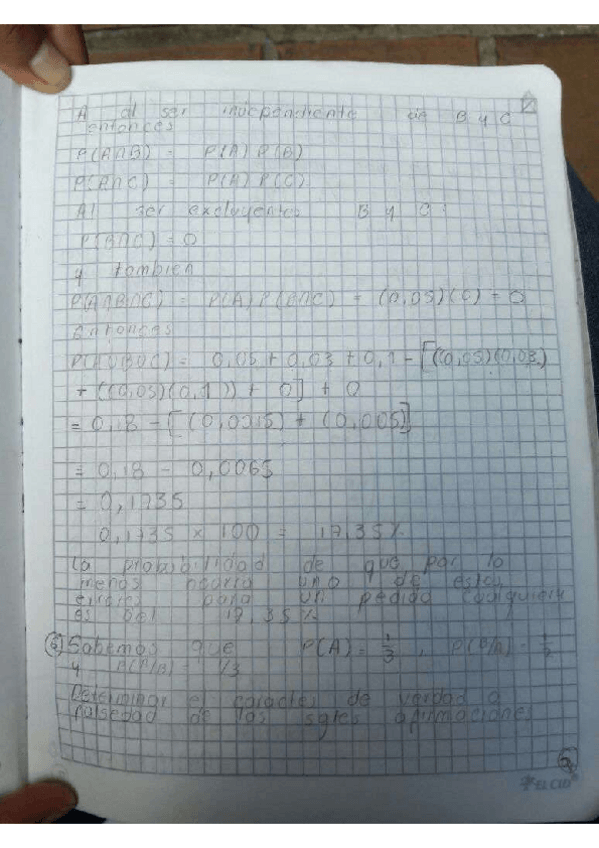 A al ser independiente de B y C
entonces
P(A∩B) = P(A) P(B)
P(A∩C) = P(A) P(C)
Al ser excluyentes B y C:
P(B∩C) = 0
y tambien
P(A∩B∩C) = P(A) P(B∩C) = (0,05)(0) = 0
Entonces
P(AUBUC) = 0,05 + 0,03 + 0,1 - [((0,05)(0,03)
+ ((0,05)(0,1)) + 0] + 0
= 0,18 - [(0,0015) + (0,005)]
= 0,18 - 0,0065
= 0,1735
0,1735 x 100 = 17,35%
La probabilidad de que por lo
menos ocurra uno de estos
errores para un pedido cualquiera
es del 17,35%
6) Sabemos que P(A) = 1/3 , P(B/A) = 1/2
y P(A/B) = 1/3
Determinar el caracter de verdad o
falsedad de las sgtes afirmaciones